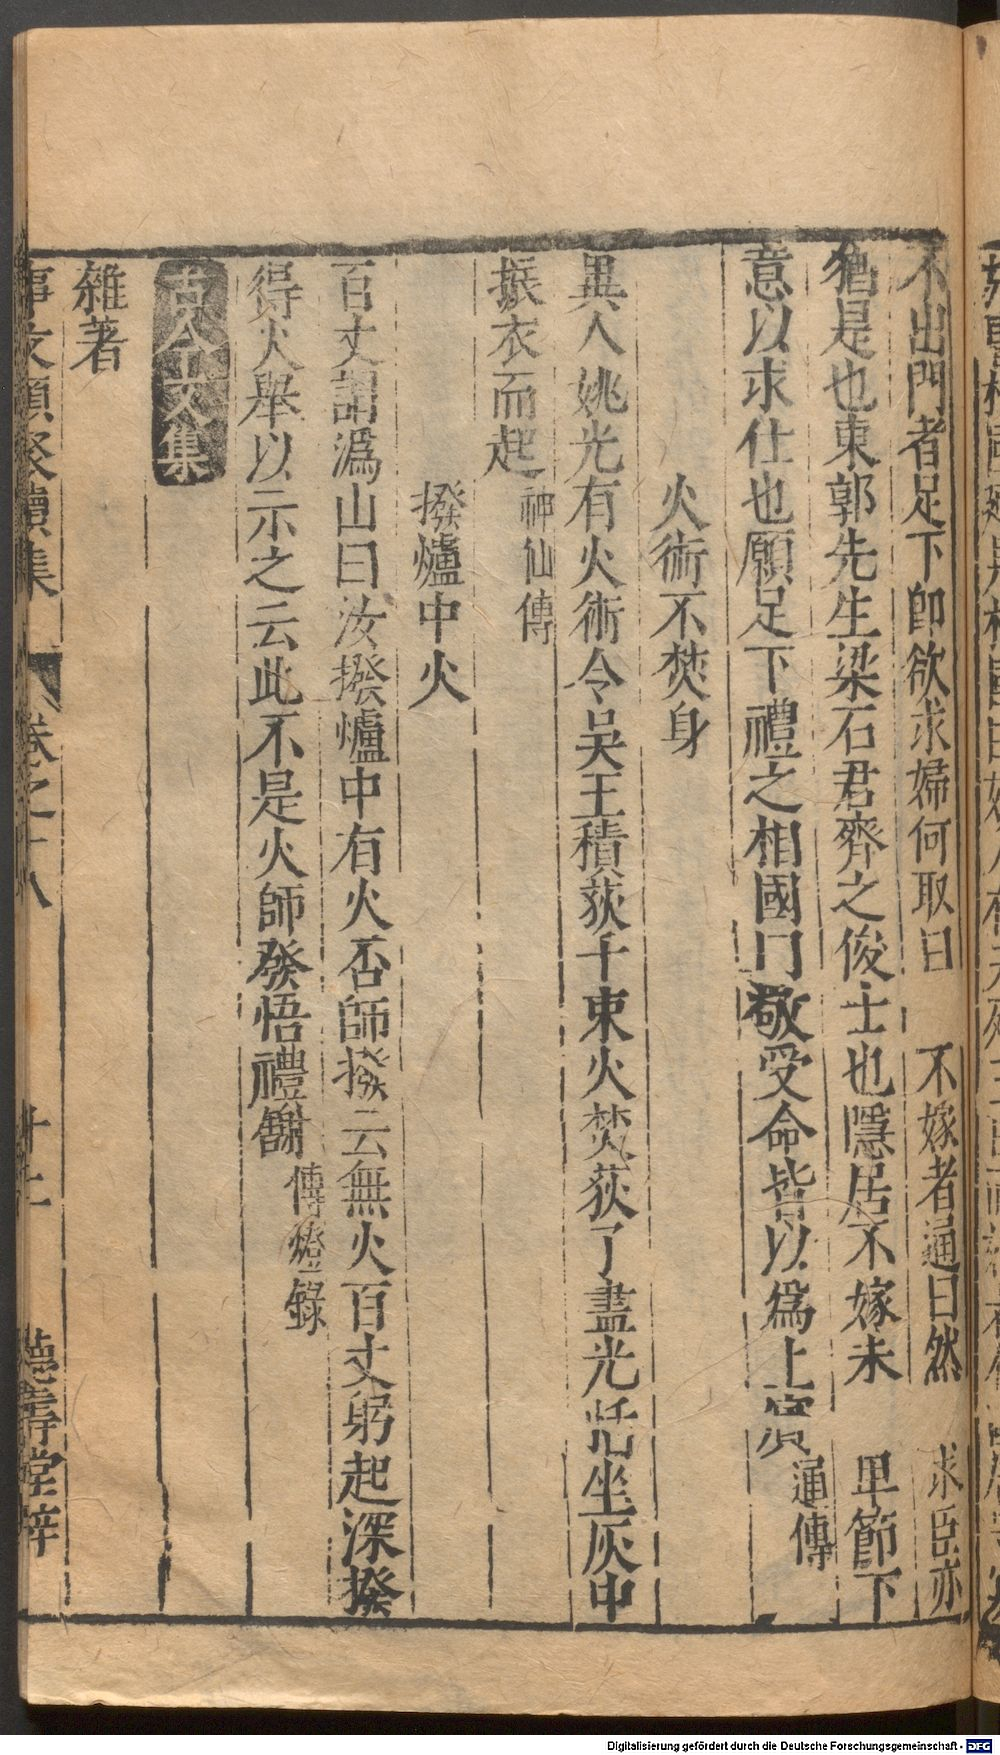 不出門者足下卽欲求婦何取曰　不嫁者通曰然　求臣亦
猶是也東郭先生梁石君齊之俊士也隱居不嫁未　卑節下
意以求仕也願足下禮之相國曰敬受命皆以爲上賓通傳
火術不焚身
異人姚光有火術令吳王積荻千束火焚荻了盡光恁坐灰中
振衣而起神仙傳
撥爐中火
百丈謂潙山曰汝撥爐中有火否師撥云無火百丈躬起深撥
得火舉以示之云此不是火師發悟禮謝傳燈錄
古今文集
雜著
事文類聚續集　卷之十八　十二　德壽堂梓
Digitalisierung gefördert durch die Deutsche Forschungsgemeinschaft - DFG